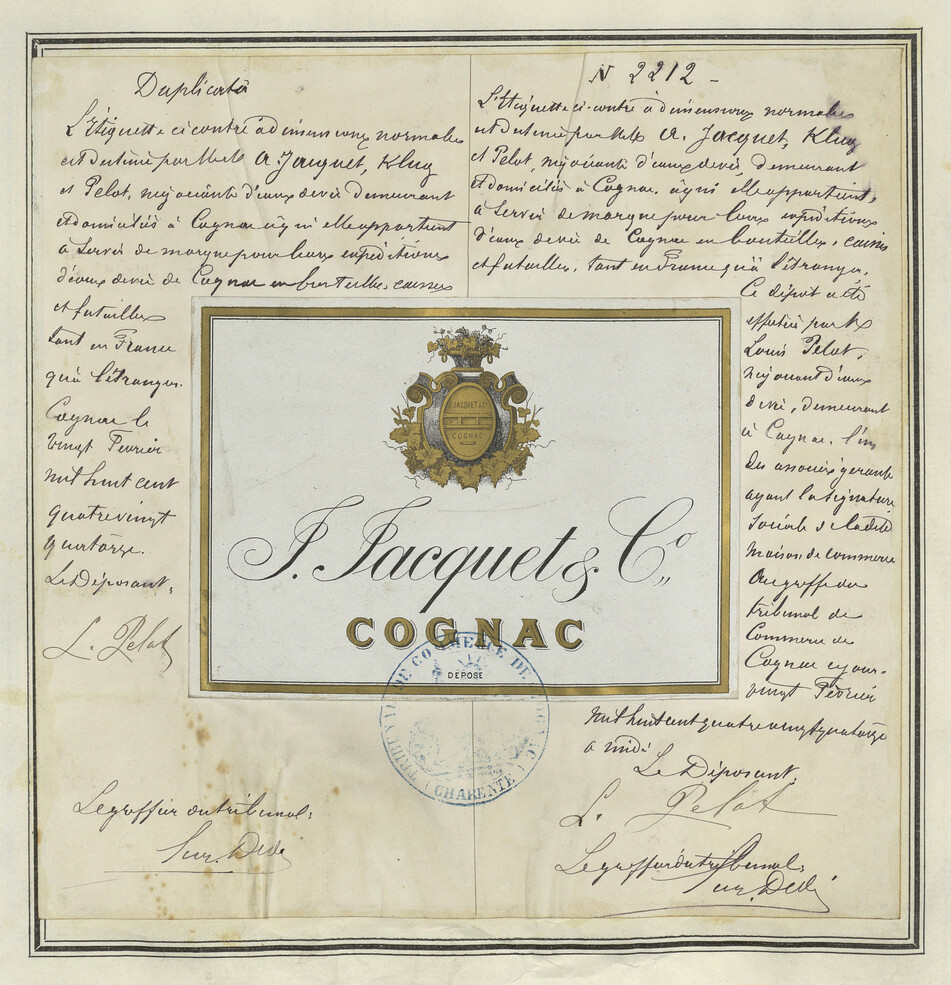 Duplicata
L'Etiquette ci contre à dimensions normales
est destinée par MM A. Jacquet, Klug
et Pelot, négociants d'eaux de vie demeurant
et domiciliés à Cognac à qui elle appartient
à servir de marque pour leurs expéditions
d'eaux de vie de Cognac en bouteilles, caisses
et futailles
tant en France
qu'à l'étranger.
Cognac le
vingt Février
mil huit cent
quatre vingt
quatorze.
Le Déposant,
L. Pelot
Le greffier du tribunal,
N 2212 -
L'Etiquette ci-contre à dimensions normales
est destinée par MM A. Jacquet, Klug
et Pelot, négociants d'eaux de vie, demeurant
et domiciliés à Cognac, à qui elle appartient,
à servir de marque pour leurs expéditions
d'eaux de vie de Cognac en bouteilles, caisses
et futailles, tant en France qu'à l'étranger.
Ce dépôt a été
effectué par M
Louis Pelot,
négociant d'eaux
de vie, demeurant
à Cognac, l'un
des associés gérants
ayant la signature
sociale de la dite
maison de commerce
Au greffe du
tribunal de
Commerce de
Cognac ce jour
vingt Février
mil huit cent quatre vingt quatorze
à midi
Le Déposant,
L. Pelot
Le greffier du tribunal,
J. JACQUET & Cº
COGNAC
J. Jacquet & Cº
COGNAC
DÉPOSÉ
TRIBUNAL DE COMMERCE DE COGNAC
(CHARENTE)